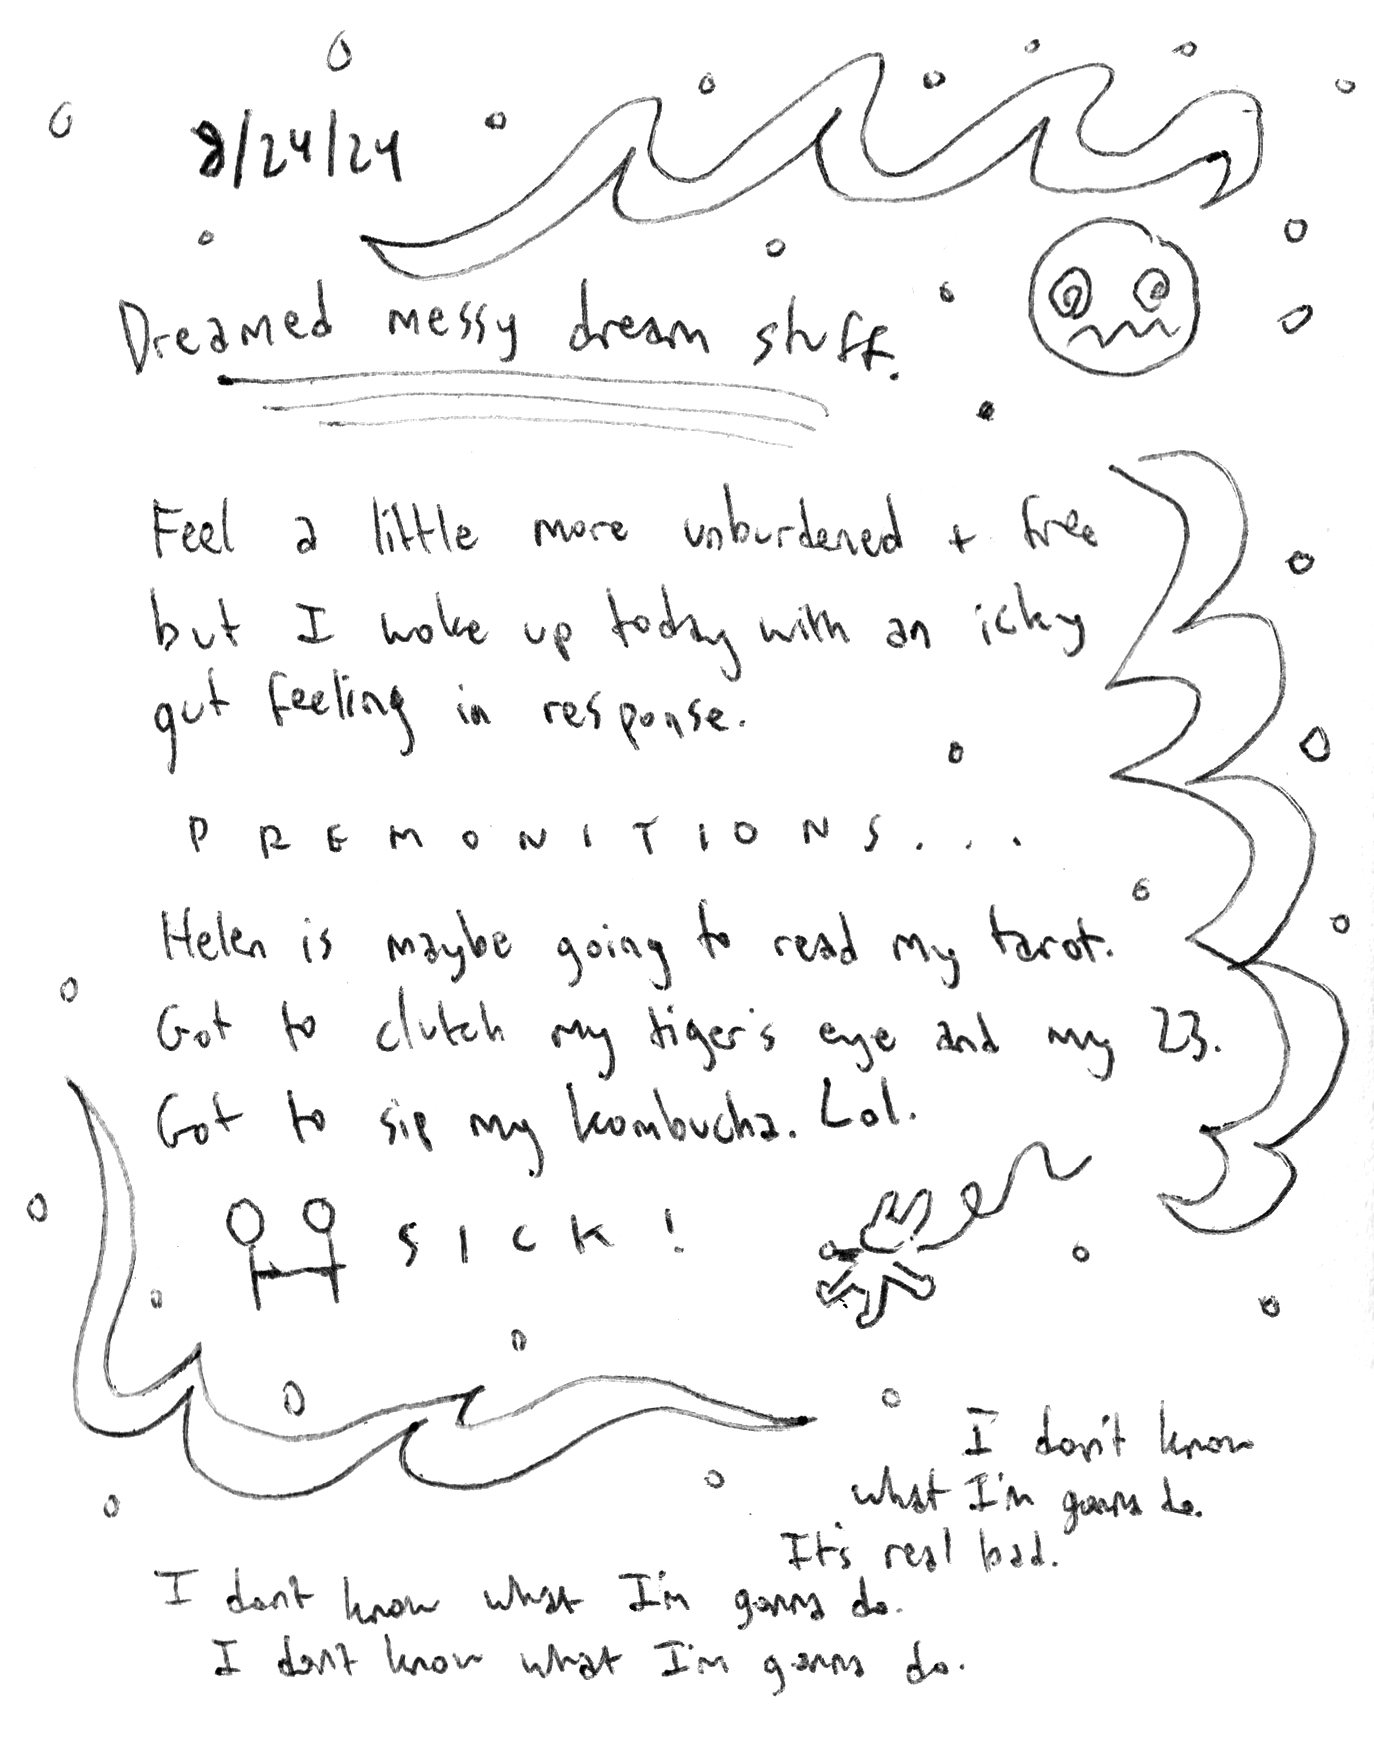 8/24/24
Dreamed messy dream stuff.
Feel a little more unburdened + free
but I woke up today with an icky
gut feeling in response.
PREMONITIONS...
Helen is maybe going to read my tarot.
Got to clutch my tiger's eye and my 23.
Got to sip my kombucha. Lol.
SICK!
I don't know
what I'm gonna do.
It's real bad.
I don't know what I'm gonna do.
I don't know what I'm gonna do.